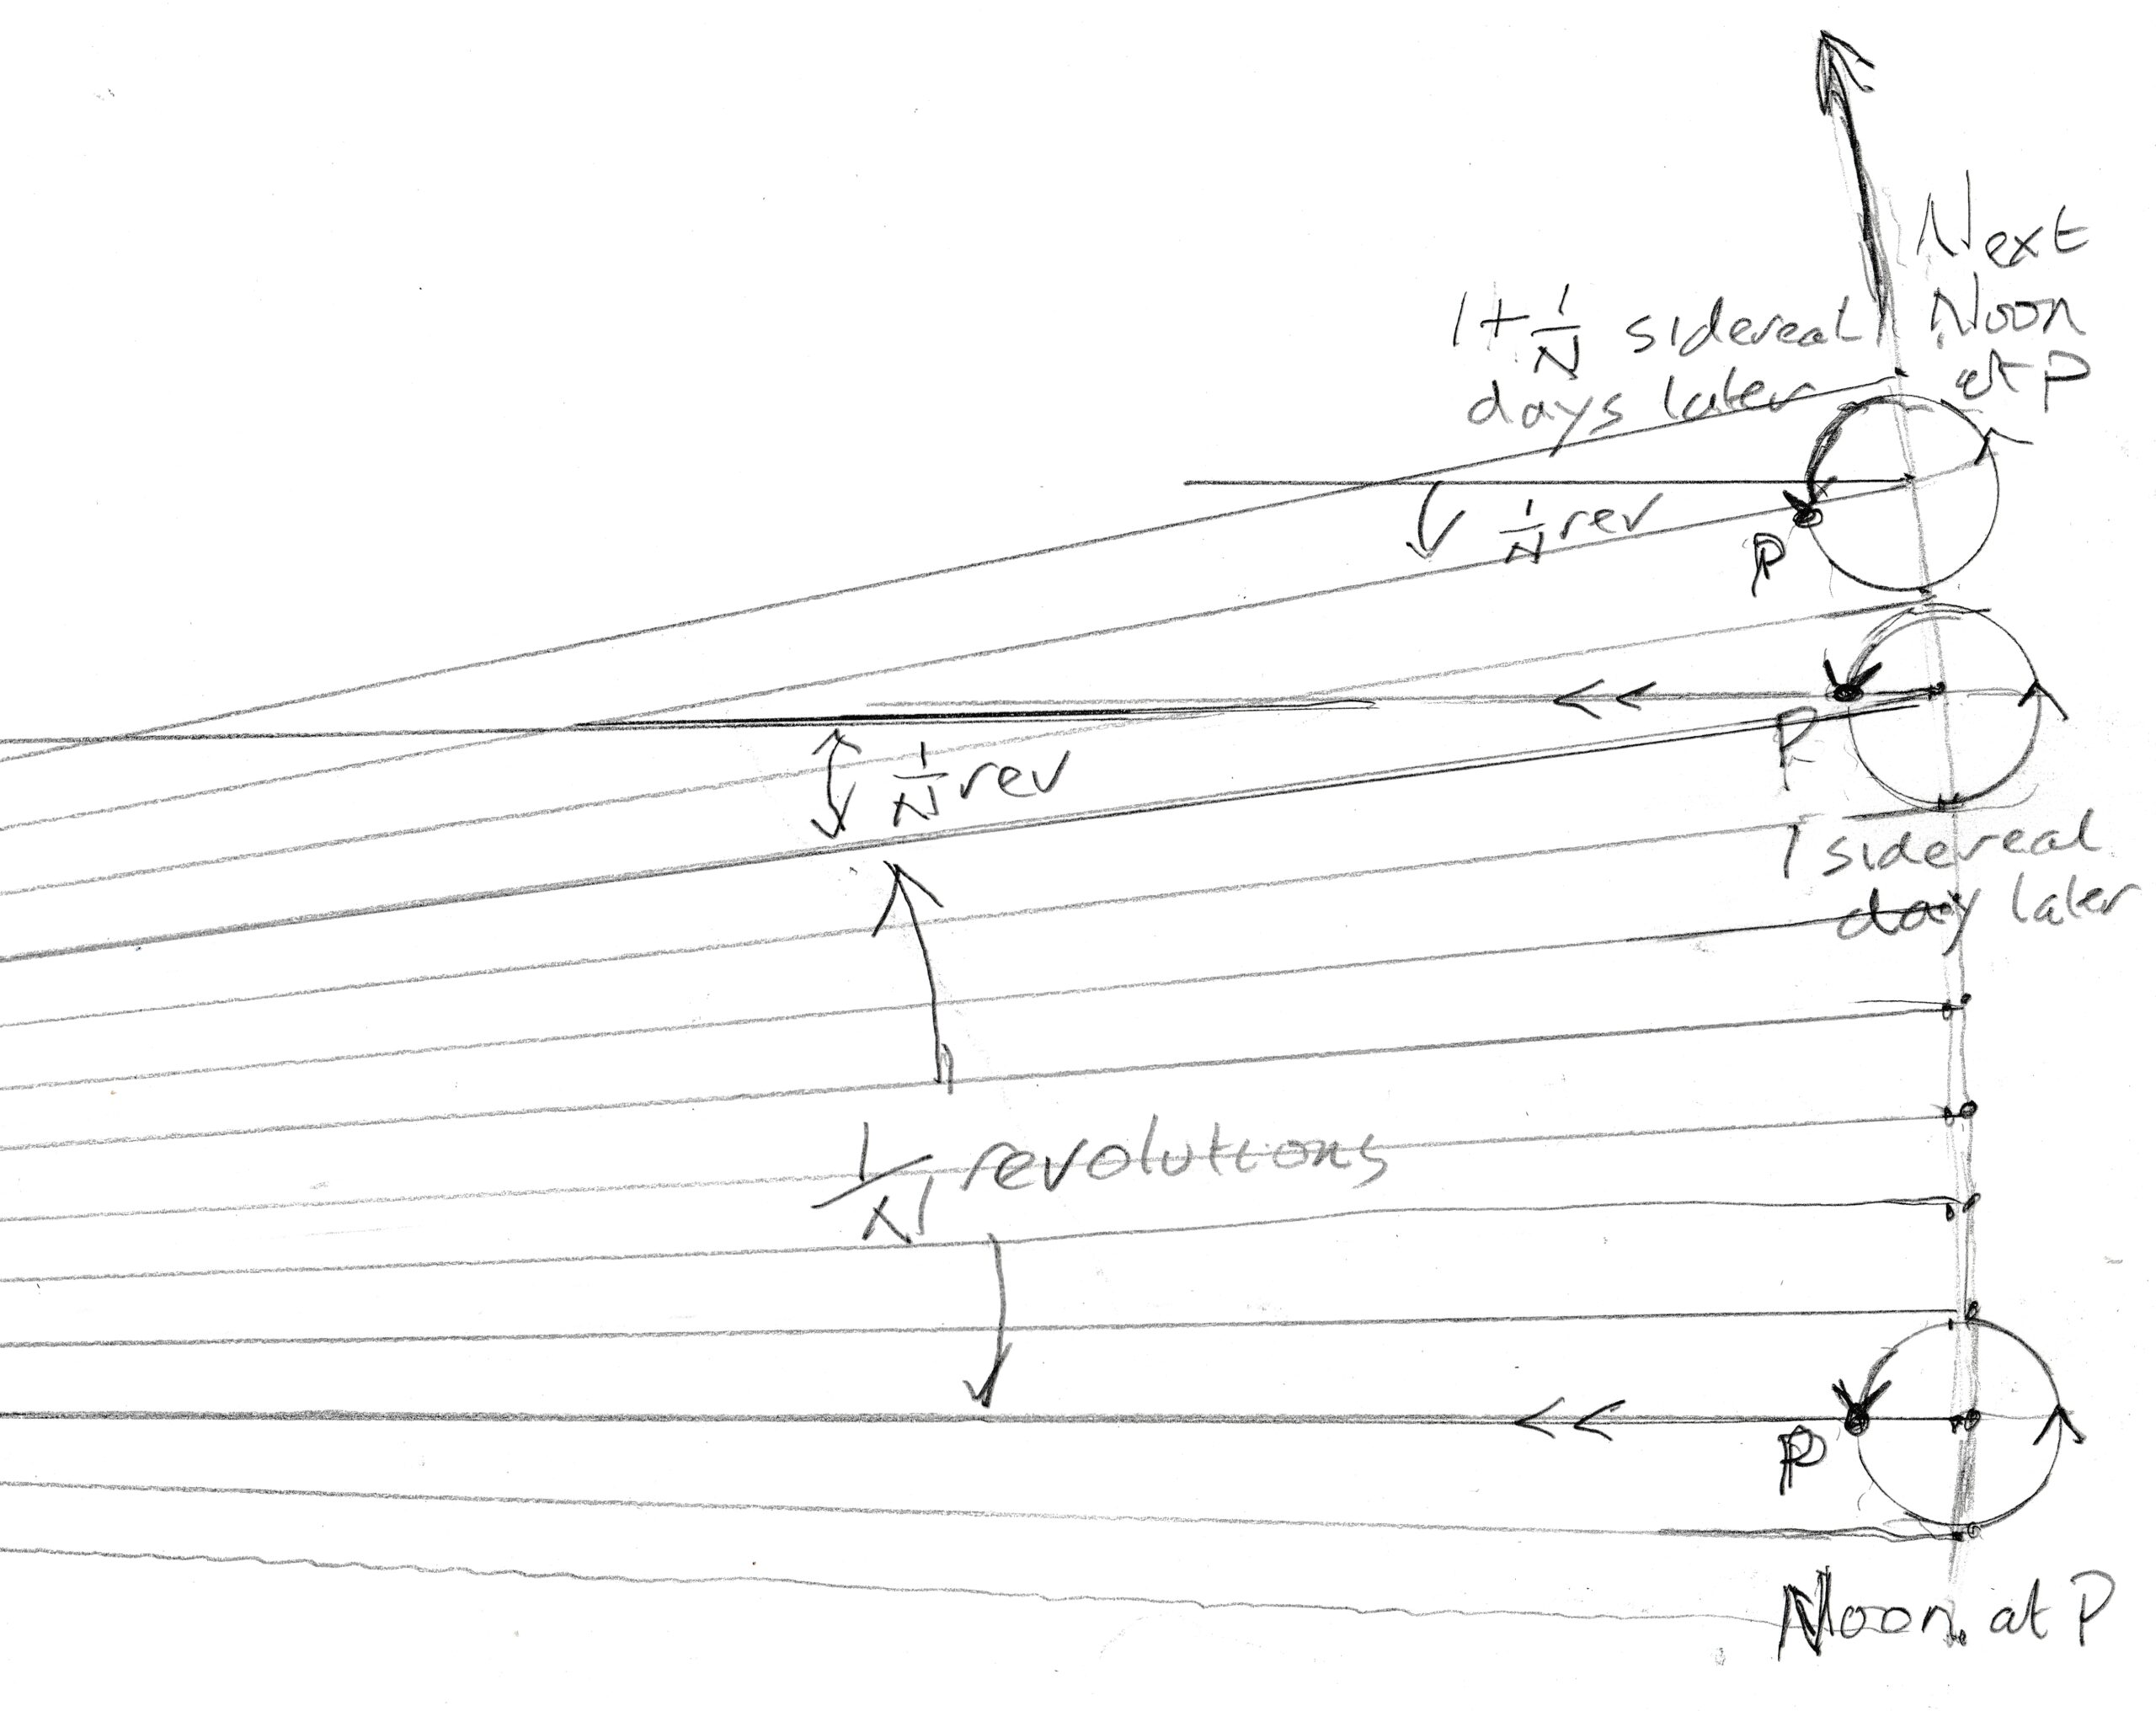 Next
Noon
at P
1+1/N sidereal
days later
1/N rev
P
P
1/N rev
1 sidereal
day later
1/N revolutions
P
Noon at P